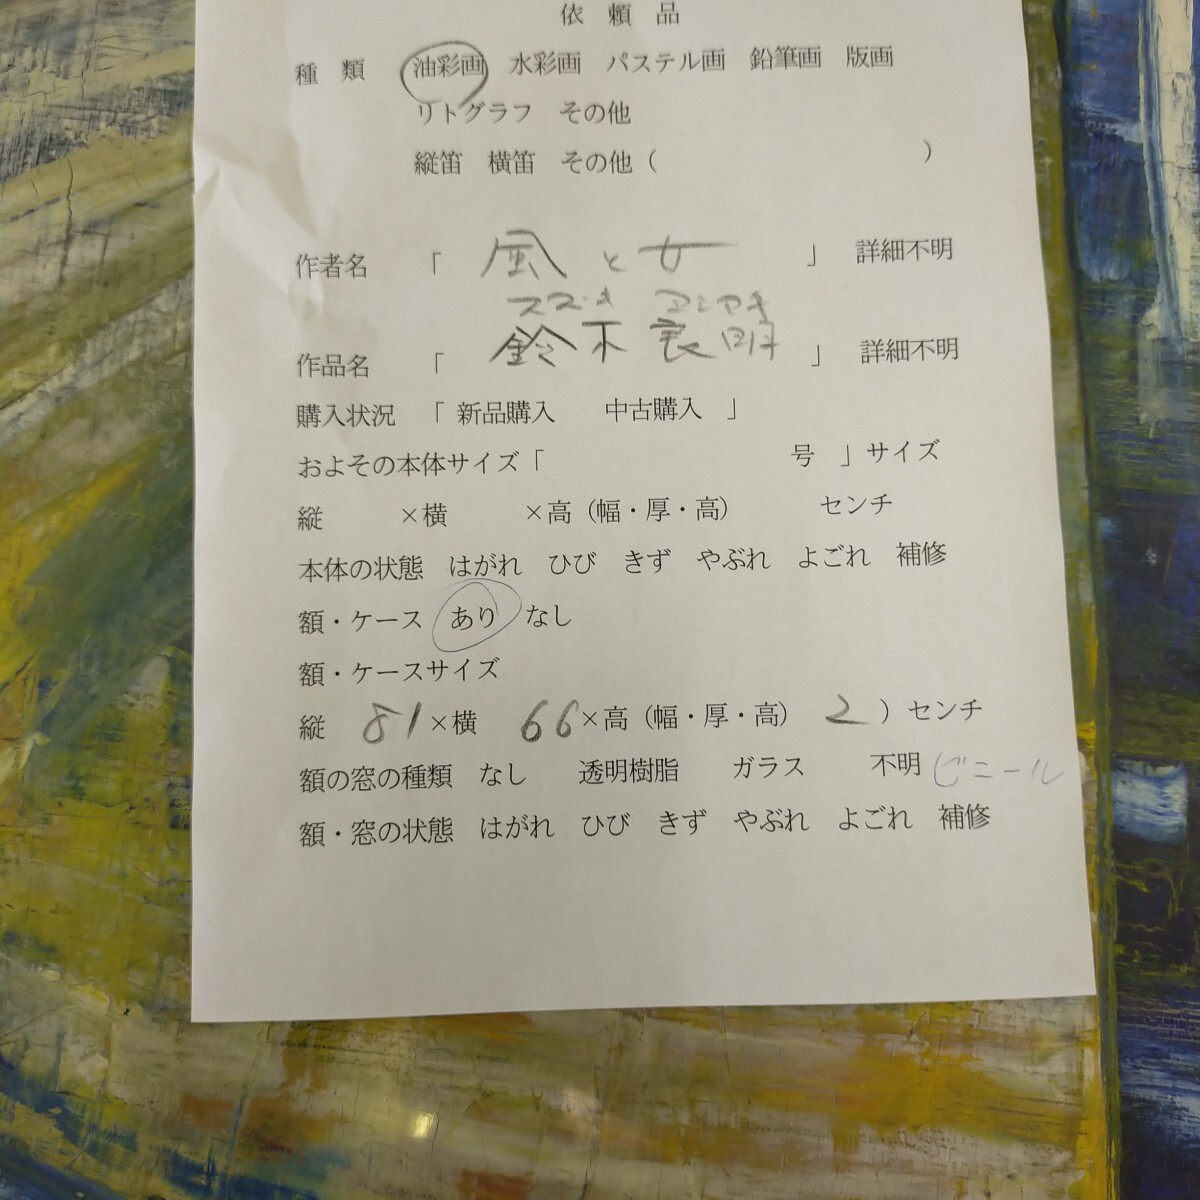 依 頼 品
種 類 油彩画 水彩画 パステル画 鉛筆画 版画
リトグラフ その他
縦笛 横笛 その他（ ）
作者名 「 風と女 」 詳細不明
スズキ
作品名 「 鈴木良明 」 詳細不明
購入状況 「 新品購入 中古購入 」
およその本体サイズ「 号 」サイズ
縦 ×横 ×高（幅・厚・高） センチ
本体の状態 はがれ ひび きず やぶれ よごれ 補修
額・ケース あり なし
額・ケースサイズ
縦 81 ×横 66 ×高（幅・厚・高） 2 ）センチ
額の窓の種類 なし 透明樹脂 ガラス 不明 ビニール
額・窓の状態 はがれ ひび きず やぶれ よごれ 補修